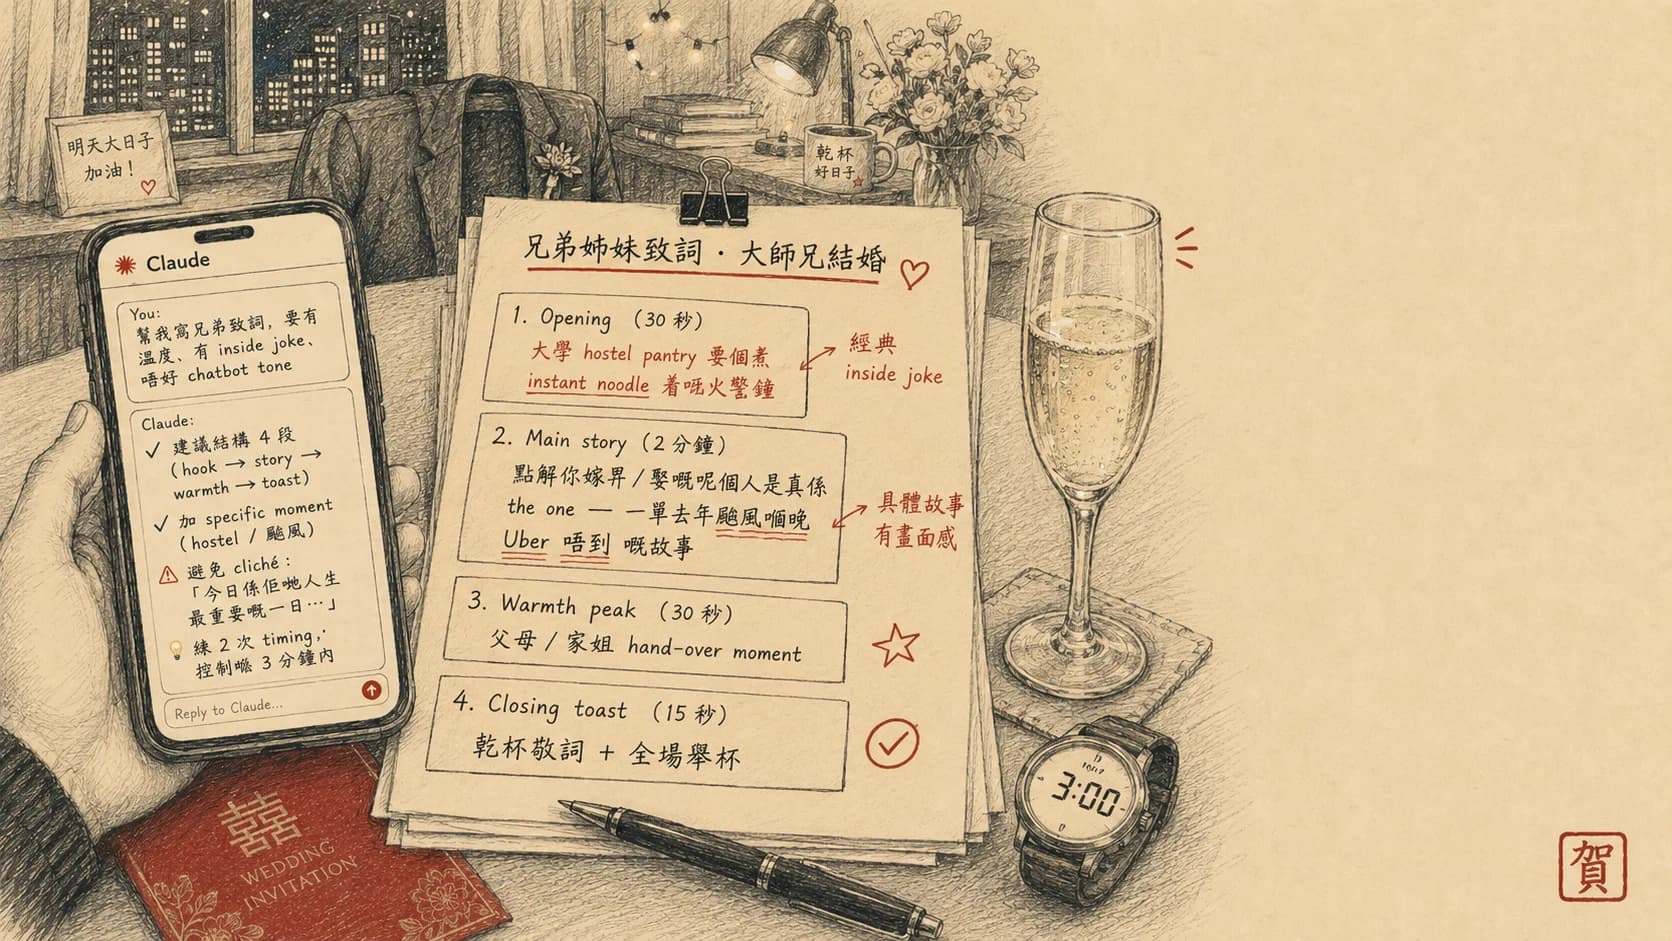 明天大日子
加油！
乾杯
好日子
Claude
You:
幫我寫兄弟致詞，要有
溫度、有 inside joke、
唔好 chatbot tone
Claude:
✓ 建議結構 4 段
（hook → story →
warmth → toast）
✓ 加 specific moment
（hostel / 颱風）
避免 cliché：
「今日係佢哋人生
最重要嘅一日…」
練 2 次 timing，
控制喺 3 分鐘內
Reply to Claude...
兄弟姊妹致詞 · 大師兄結婚
1. Opening （30 秒）
大學 hostel pantry 要個煮
instant noodle 着咗火警鐘
經典
inside joke
2. Main story （2 分鐘）
點解你嫁畀 / 娶嘅呢個人是真係
the one — 一單去年颱風嗰晚
Uber 唔到 嘅故事
具體故事
有畫面感
3. Warmth peak （30 秒）
父母 / 家姐 hand-over moment
4. Closing toast （15 秒）
乾杯敬詞 + 全場舉杯
3:00
囍
WEDDING
INVITATION
賀